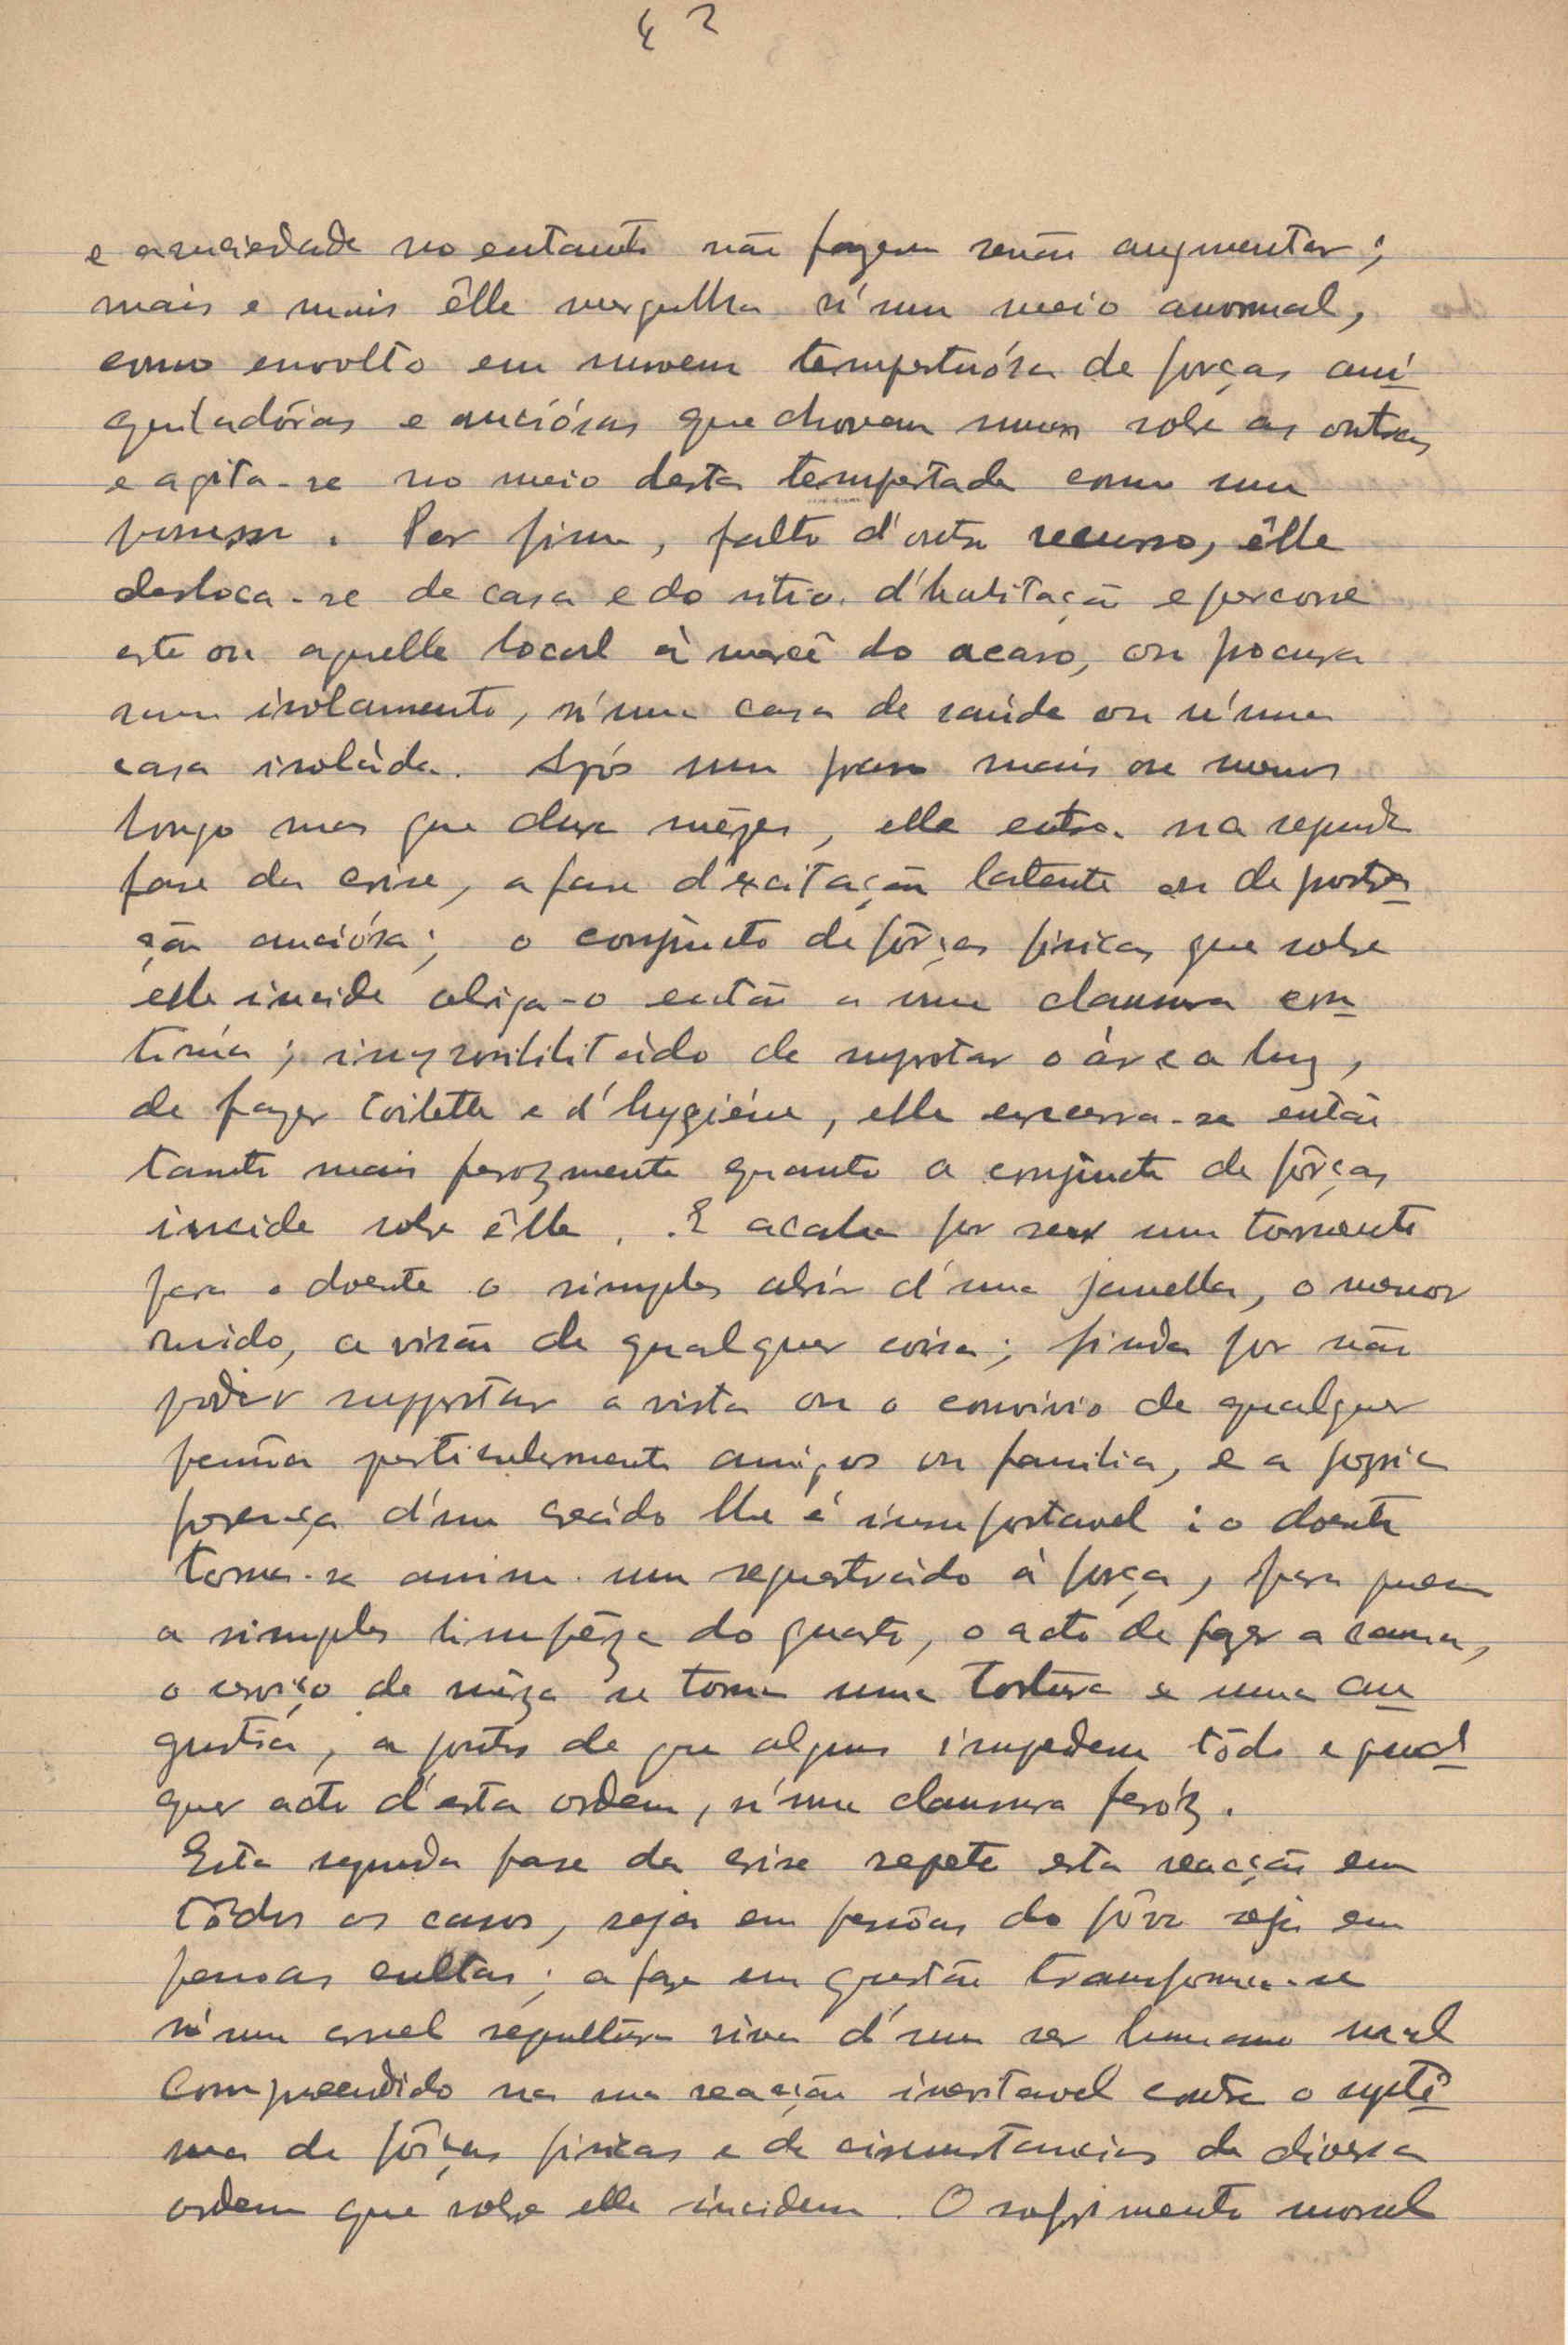 42
e anciedade no entanto não fazem senão augmentar;
mais e mais êlle mergulha n'um meio anormal,
como envolto em nuvem tempestuósa de forças ani
quiladóras e anciósas que chovem umas sobre as outras
e agita-se no meio desta tempestade como um
possesso. Por fim, falto d'outro recurso, êlle
desloca-se de casa e do sitio d'habitação e percorre
este ou aquelle local à mercê do acaso, ou procura
num isolamento, n'uma casa de saúde ou n'uma
casa isoláda. Após um prazo mais ou menos
longo mas que dura mêzes, elle entra na segunda
fase da crise, a fase d'excitação latente ou de prostra
ção anciósa; o conjuncto de fôrças fisicas que sobre
elle incide obriga-o então a uma clausura con
tinúa; impossibilitádo de suportar o ár e a luz,
de fazer toilette e d'hygiéne, elle encerra-se então
tanto mais ferozmente quanto o conjuncto de fôrças
incide sobre êlle. E acaba por ser um tormento
para o doente o simples abrir d'uma janella, o menor
ruido, a visão de qualquer coisa; finda por não
poder supportar a vista ou o convivio de qualquer
pessôa particularmente amigos ou familia, e a propria
presença d'um creádo lhe é insuportavel: o doente
torna-se assim um sequestrádo à força, para quem
a simples limpêza do quarto, o acto de fazer a cama,
o serviço de mêza se torna uma tortura e uma an
gustia, a pontos de que alguns impedem tôdo e qual
quer acto d'esta ordem, n'uma clausura feróz.
Esta segunda fase da crise repete esta reacção em
tôdos os casos, seja em pessôas do pôvo seja em
pessoas cultas; a fase em questão transforma-se
n'uma cruel sepultura viva d'um ser humano mal
comprehendido na sua reacção inevitavel contra o systê
ma de fôrças fisicas e de circunstancias de diversa
ordem que sobre elle incidem. O sofrimento moral